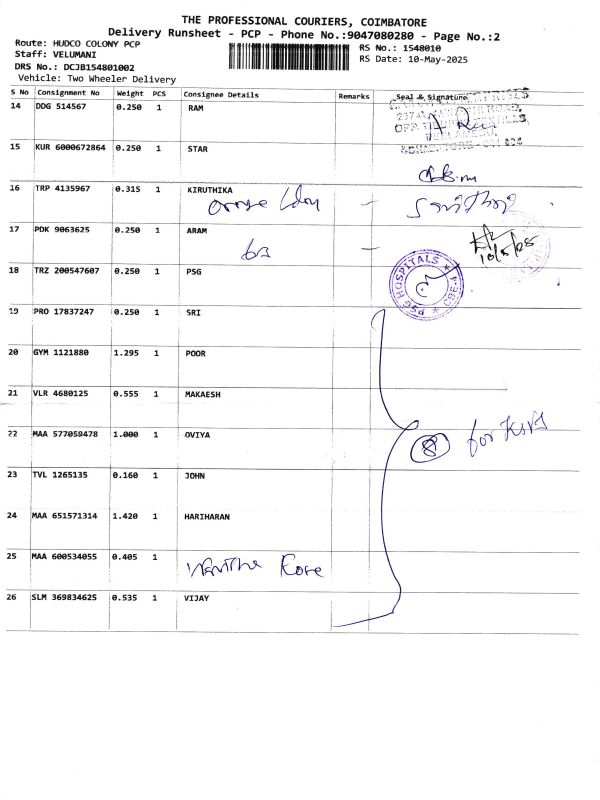 THE PROFESSIONAL COURIERS, COIMBATORE
Delivery Runsheet - PCP - Phone No.:9047080280 - Page No.:2
Route: HUDCO COLONY PCP
Staff: VELUMANI
RS No.: 1548010
DRS No.: DCJB154801002
RS Date: 10-May-2025
Vehicle: Two Wheeler Delivery
S No Consignment No Weight PCS Consignee Details Remarks Seal & Signature
14 DDG 514567 0.250 1 RAM
15 KUR 6000672864 0.250 1 STAR
16 TRP 4135967 0.315 1 KIRUTHIKA
17 PDK 9063625 0.250 1 ARAM
10/5/25
18 TRZ 200547607 0.250 1 PSG
PSG HOSPITALS
19 PRO 17837247 0.250 1 SRI
20 GYM 1121880 1.295 1 POOR
21 VLR 4680125 0.555 1 MAKAESH
22 MAA 577059478 1.000 1 OVIYA
8 for
23 TVL 1265135 0.160 1 JOHN
24 MAA 651571314 1.420 1 HARIHARAN
25 MAA 600534055 0.405 1
26 SLM 369834625 0.535 1 VIJAY